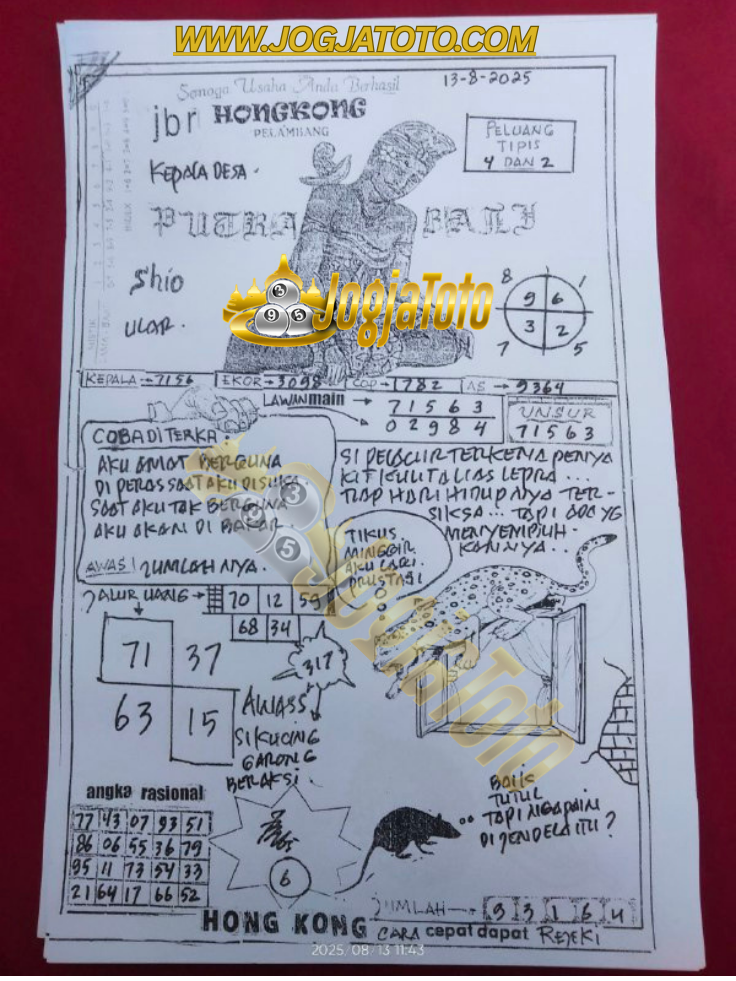 WWW.JOGJATOTO.COM
Semoga Usaha Anda Berhasil
13-8-2025
jbr HONGKONG
PELAMBANG
PELUANG
TIPIS
4 DAN 2
KEPALA DESA.
PUTRA BALI
Shio
ULAR.
JogjaToto
8 1
9 6
3 2
7 5
KEPALA → 7156
EKOR → 3098
COP → 1782
AS → 9364
LAWAN main → 7 1 5 6 3
0 2 9 8 4
UNSUR
7 1 5 6 3
COBA DI TERKA:
AKU AMAT BERGUNA
DI PERAS SAAT AKU DI SUKA.
SAAT AKU TAK BERGUNA
AKU AKAN DI BAKAR.
AWAS! JUMLAH NYA.
SI PELACUR TERKENA PENYA
KIT KULIT ALIAS LEPRA...
TIAP HARI HIDUPNYA TER-
SIKSA... TAPI ADA YG
MENYEMBUH-
KANNYA...
TIKUS.
MINGGIR.
AKU LAGI.
PRUSTASI
JALUR UANG → 70 12 59
68 34
71 37
63 15
317
AWASS
SI KUCING
GARONG
BERAKSI.
angka rasional
77 43 07 93 51
86 06 55 36 79
95 11 73 54 33
21 64 17 66 52
6
BAIK
TUTUL
TAPI NGAPAIN
DI JENDELA ITU?
JUMLAH → 9 3 1 6 4
HONG KONG CARA cepat dapat REJEKI
2025/08/13 11:43
JogjaToto